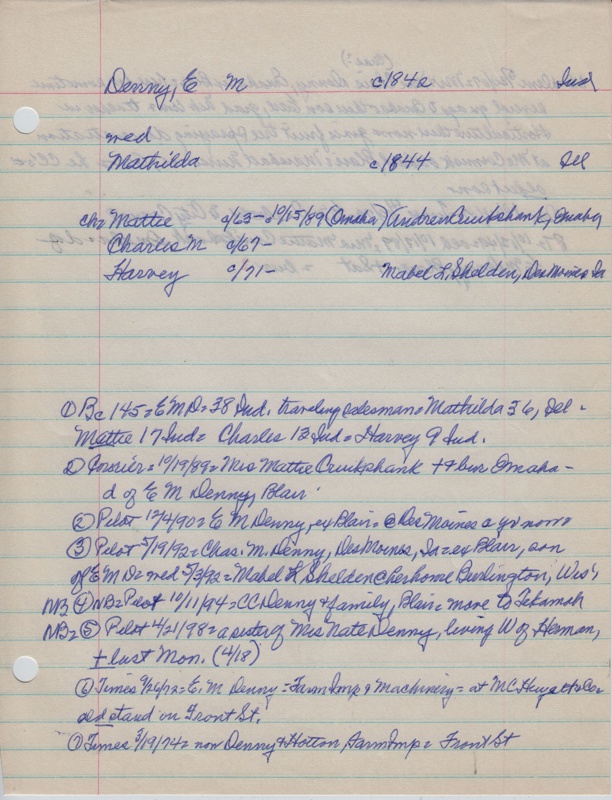 Denny, E M c1842 Ind
med
Mathilda c1844 Ill
ch= Mattie c/63- d9/15/89 (Omaha) Andrew Cruikshank, Omaha
Charles M c/67-
Harvey c/71- Mabel L. Shelden, Des Moines Ia
① Bc 145= E M D= 38 Ind. traveling salesman= Mathilda 36, Ill.
Mattie 17 Ind= Charles 13 Ind= Harvey 9 Ind.
② Courier= 10/19/89= Mrs Mattie Cruikshank + & bur Omaha-
d of E M Denny, Blair
② Pilot 12/4/90= E M Denny, ex Blair= @ Des Moines a yr now
③ Pilot 5/19/92= Chas. M. Denny, Des Moines, Ia= ex Blair, son
of E M D= med 5/3/92= Mabel L Shelden @ her home Burlington, Wis.
NB ④ NB= Pilot 10/11/94= CC Denny & family, Blair= move to Tekamah
NB= ⑤ Pilot 4/21/98= a sister of Mrs Nate Denny, living W of Herman,
+ last Mon. (4/18)
⑥ Times 9/26/72= E. M. Denny= Farm Imp & Machinery= at MC Huyett & Co
old stand on Front St.
⑦ Times 3/19/74= now Denny & Hotton Farm Imp= Front St